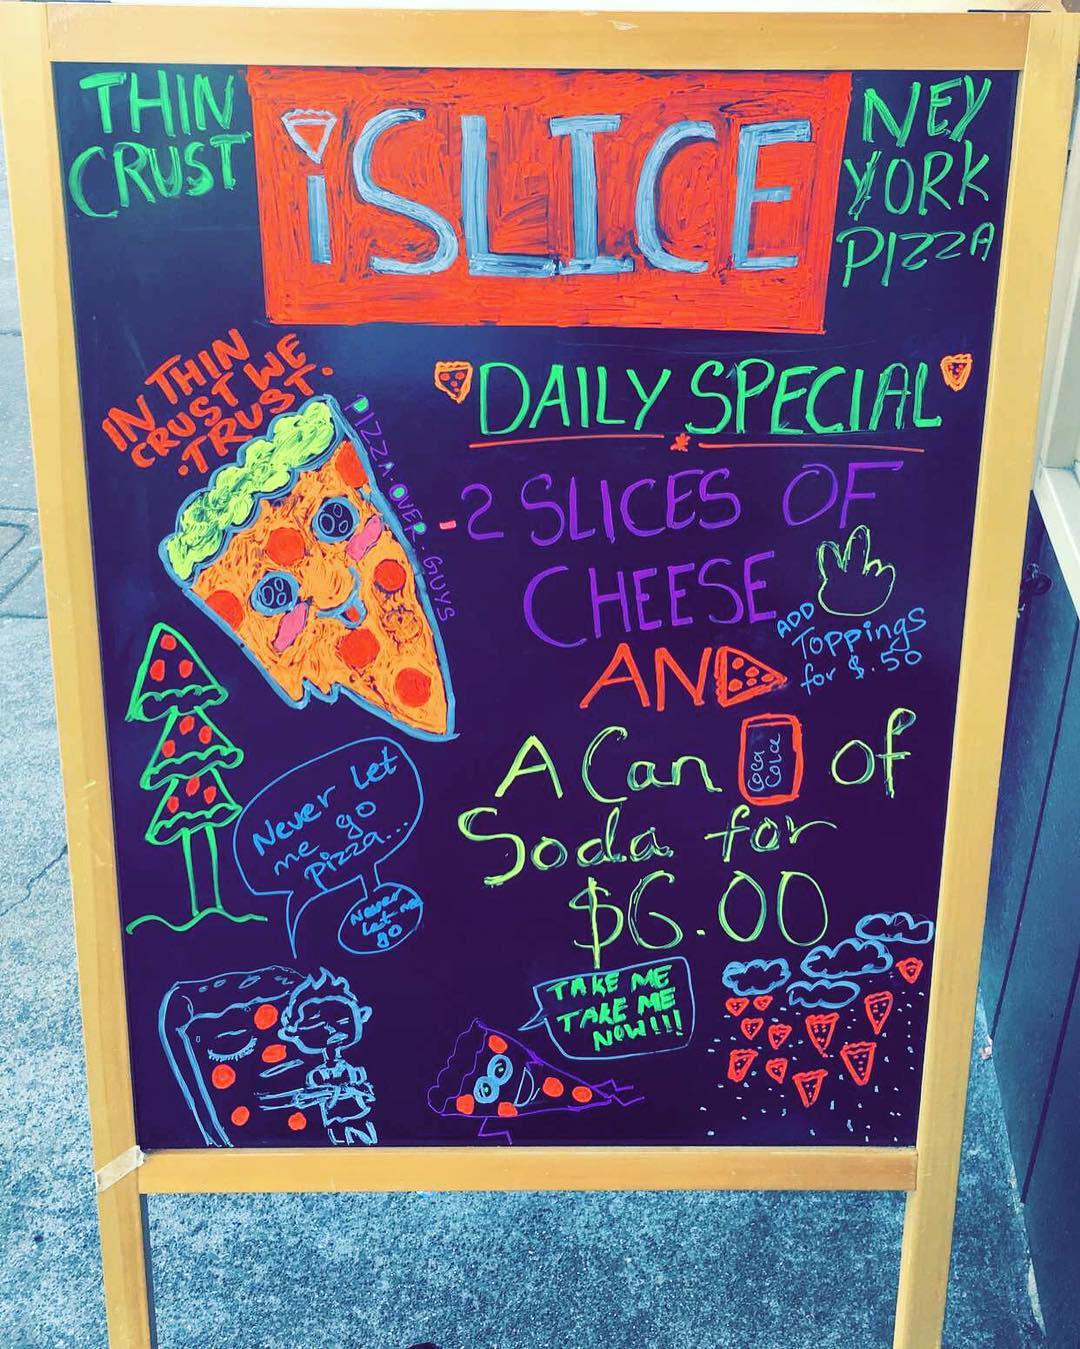 THIN
CRUST
iSLICE
NEY
YORK
PIZZA
IN THIN
CRUST WE
.TRUST.
PIZZA.OVER.GUYS
DAILY SPECIAL
-2 SLICES OF
CHEESE
ADD
Toppings
for $.50
AND
A Can of
Coca
Cola
Soda for
$6.00
Never Let
me go
pizza....
Never
Let me
go
TAKE ME
TAKE ME
NOW!!!